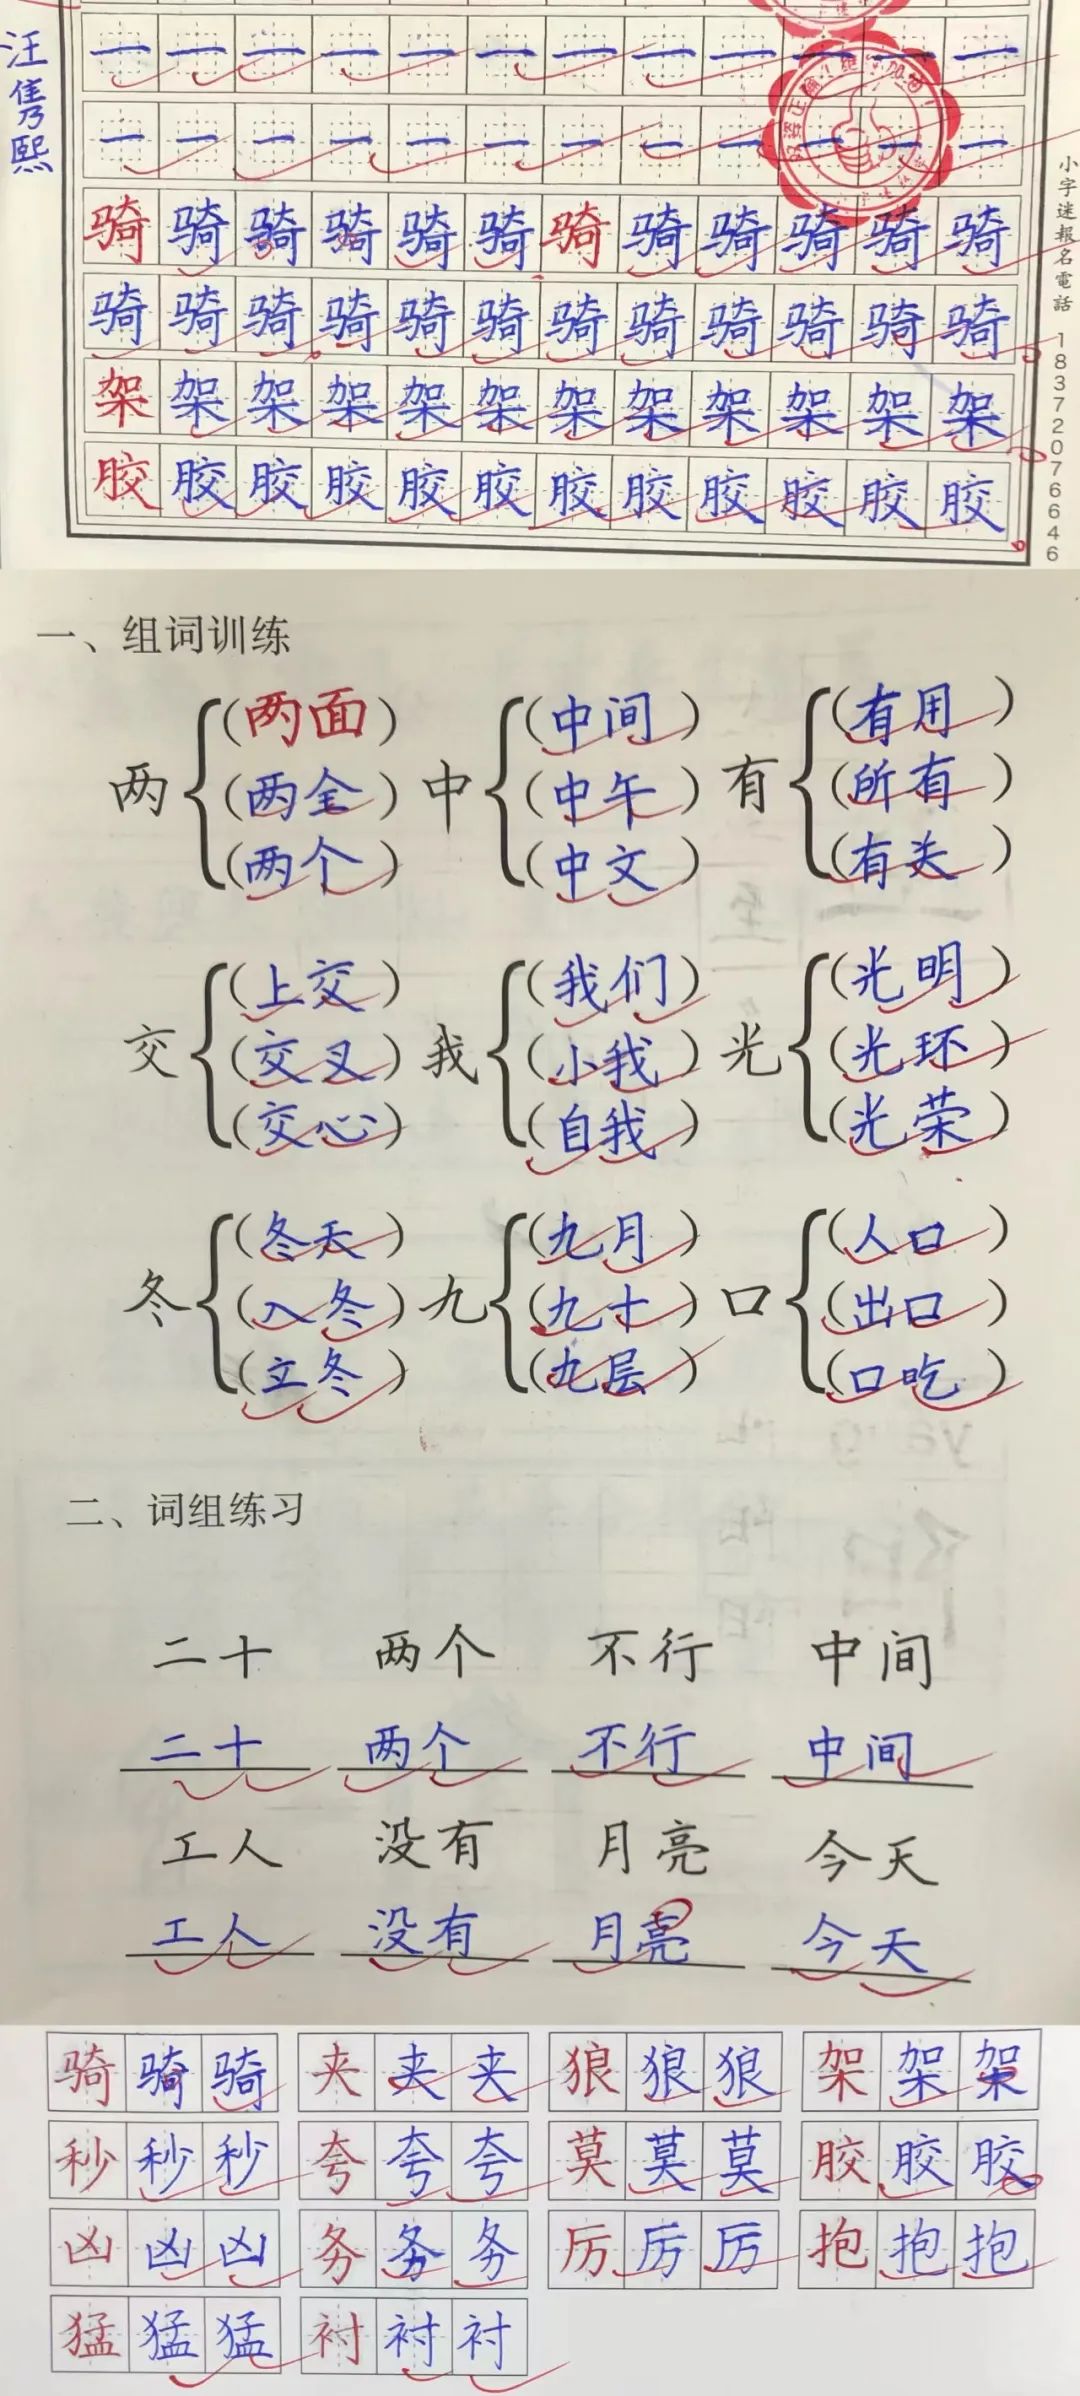 汪隽熙
一 一 一 一 一 一 一 一 一 一 一 一
一 一 一 一 一 一 一 一 一 一 一 一
骑 骑 骑 骑 骑 骑 骑 骑 骑 骑 骑 骑
骑 骑 骑 骑 骑 骑 骑 骑 骑 骑 骑 骑
架 架 架 架 架 架 架 架 架 架 架 架
胶 胶 胶 胶 胶 胶 胶 胶 胶 胶 胶 胶
小字迷報名電話 18372076646
一、组词训练
(两面) (中间) (有用)
两 (两全) 中 (中午) 有 (所有)
(两个) (中文) (有关)
(上交) (我们) (光明)
交 (交叉) 我 (小我) 光 (光环)
(交心) (自我) (光荣)
(冬天) (九月) (人口)
冬 (入冬) 九 (九十) 口 (出口)
(立冬) (九层) (口吃)
二、词组练习
二十 两个 不行 中间
二十 两个 不行 中间
工人 没有 月亮 今天
工人 没有 月亮 今天
骑 骑 骑 夹 夹 夹 狼 狼 狼 架 架 架
秒 秒 秒 夸 夸 夸 莫 莫 莫 胶 胶 胶
凶 凶 凶 务 务 务 厉 厉 厉 抱 抱 抱
猛 猛 猛 衬 衬 衬